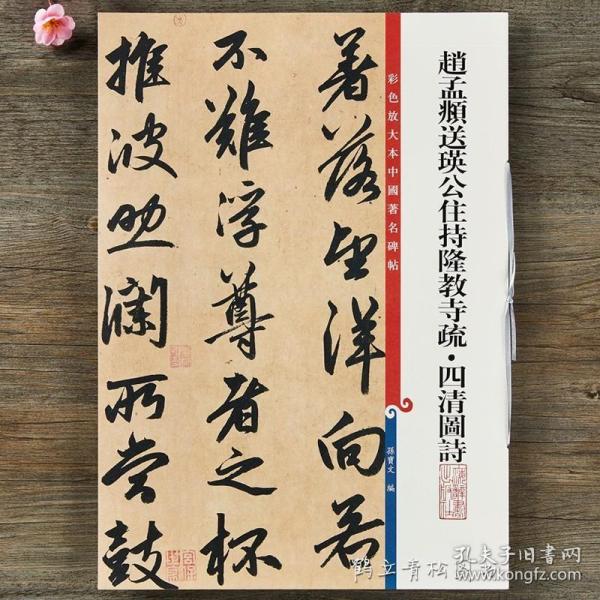 趙孟頫送瑛公住持隆教寺疏·四清圖詩
彩色放大本中國著名碑帖
孫寶文 編
著落望洋向若
不難浮尊者之杯
推波助瀾所當鼓
鶴立青松图书
孔夫子旧书网
www.kongfz.com